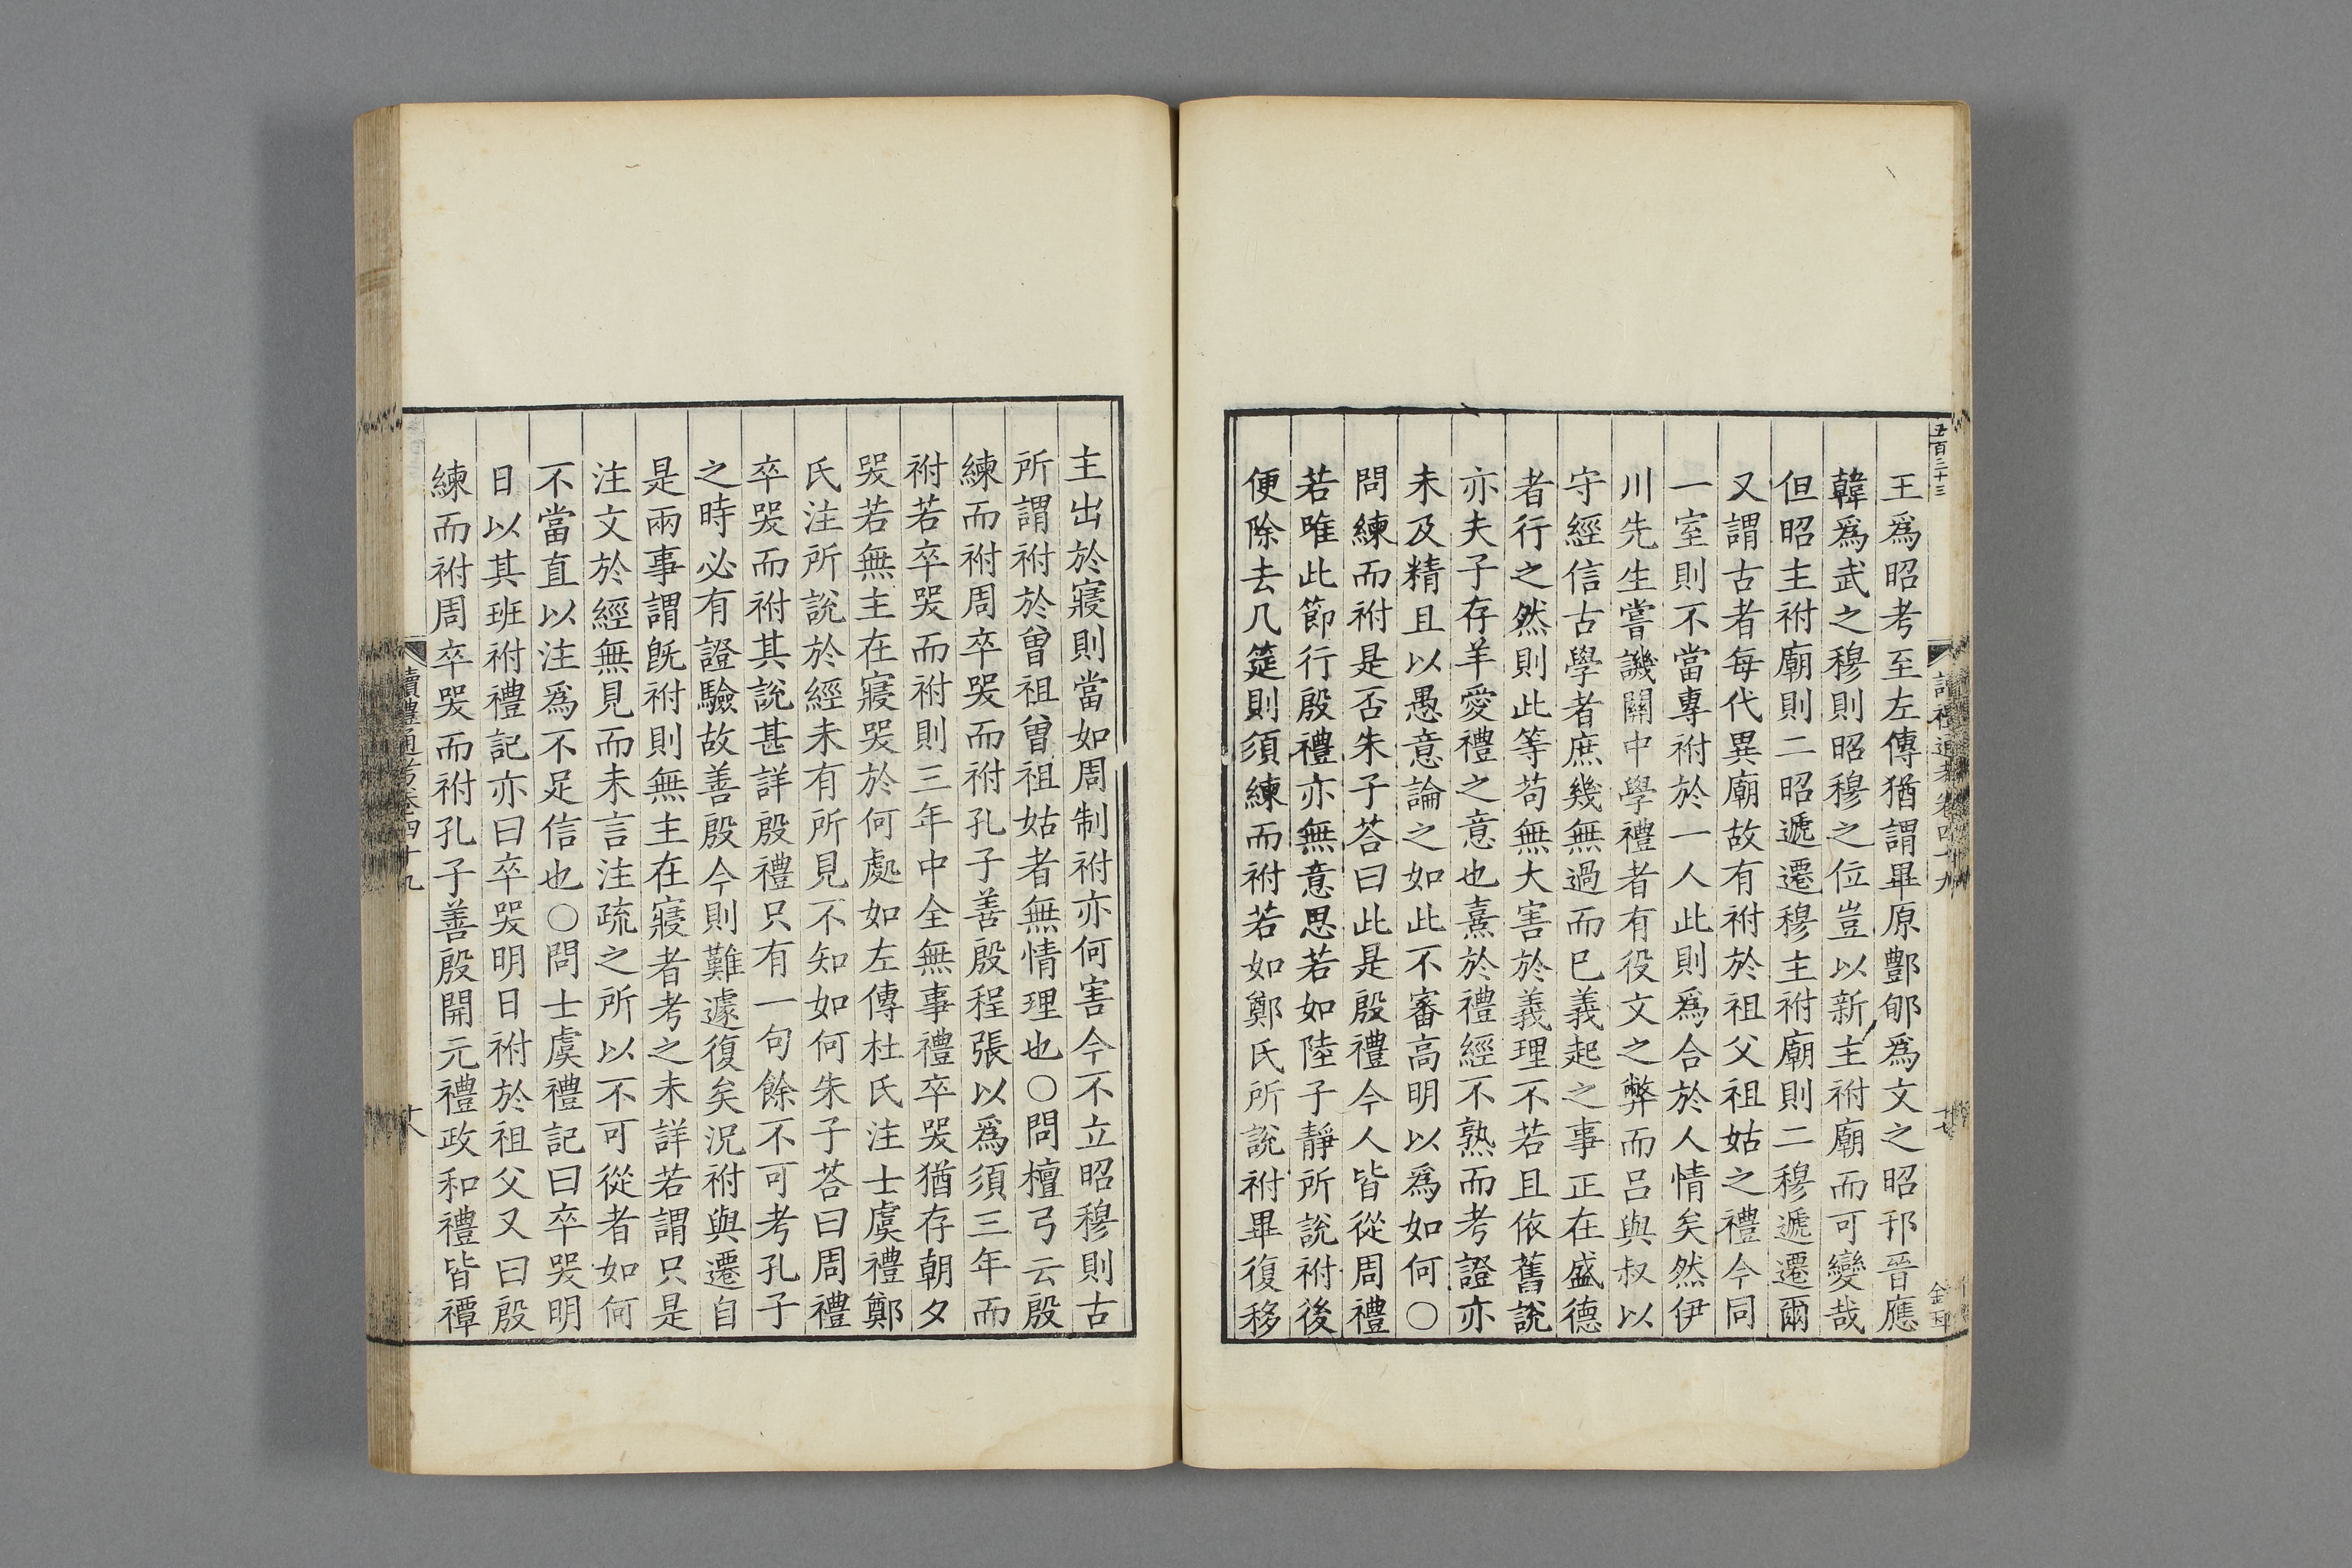 五百三十三
讀禮通考卷四十九
十七
王爲昭考至左傳猶謂畢原酆郇爲文之昭邘晉應
韓爲武之穆則昭穆之位豈以新主祔廟而可變哉
但昭主祔廟則二昭遞遷穆主祔廟則二穆遞遷爾
又謂古者每代異廟故有祔於祖父祖姑之禮今同
一室則不當專祔於一人此則爲合於人情矣然伊
川先生嘗譏關中學禮者有役文之弊而呂與叔以
守經信古學者庶幾無過而已義起之事正在盛德
者行之然則此等苟無大害於義理不若且依舊說
亦夫子存羊愛禮之意也熹於禮經不熟而考證亦
未及精且以愚意論之如此不審高明以爲如何○
問練而祔是否朱子荅曰此是殷禮今人皆從周禮
若唯此節行殷禮亦無意思若如陸子靜所說祔後
便除去几筵則須練而祔若如鄭氏所說祔畢復移
主出於寢則當如周制祔亦何害今不立昭穆則古
所謂祔於曾祖曾祖姑者無情理也○問檀弓云殷
練而祔周卒哭而祔孔子善殷程張以爲須三年而
祔若卒哭而祔則三年中全無事禮卒哭猶存朝夕
哭若無主在寢哭於何處如左傳杜氏注士虞禮鄭
氏注所說於經未有所見不知如何朱子荅曰周禮
卒哭而祔其說甚詳殷禮只有一句餘不可考孔子
之時必有證驗故善殷今則難遽復矣況祔與遷自
是兩事謂旣祔則無主在寢者考之未詳若謂只是
注文於經無見而未言注疏之所以不可從者如何
不當直以注爲不足信也○問士虞禮記曰卒哭明
日以其班祔禮記亦曰卒哭明日祔於祖父又曰殷
練而祔周卒哭而祔孔子善殷開元禮政和禮皆禫
讀禮通考卷四十九
十八